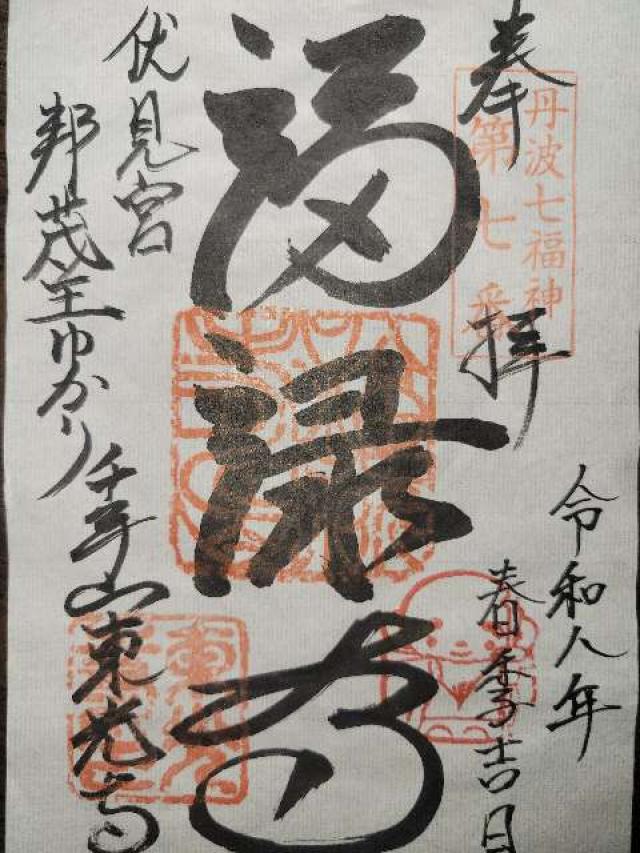 奉拝
丹波七福神
第七番
令和八年
春季吉日
福禄寿
伏見宮
邦茂王ゆかり千手山東光寺